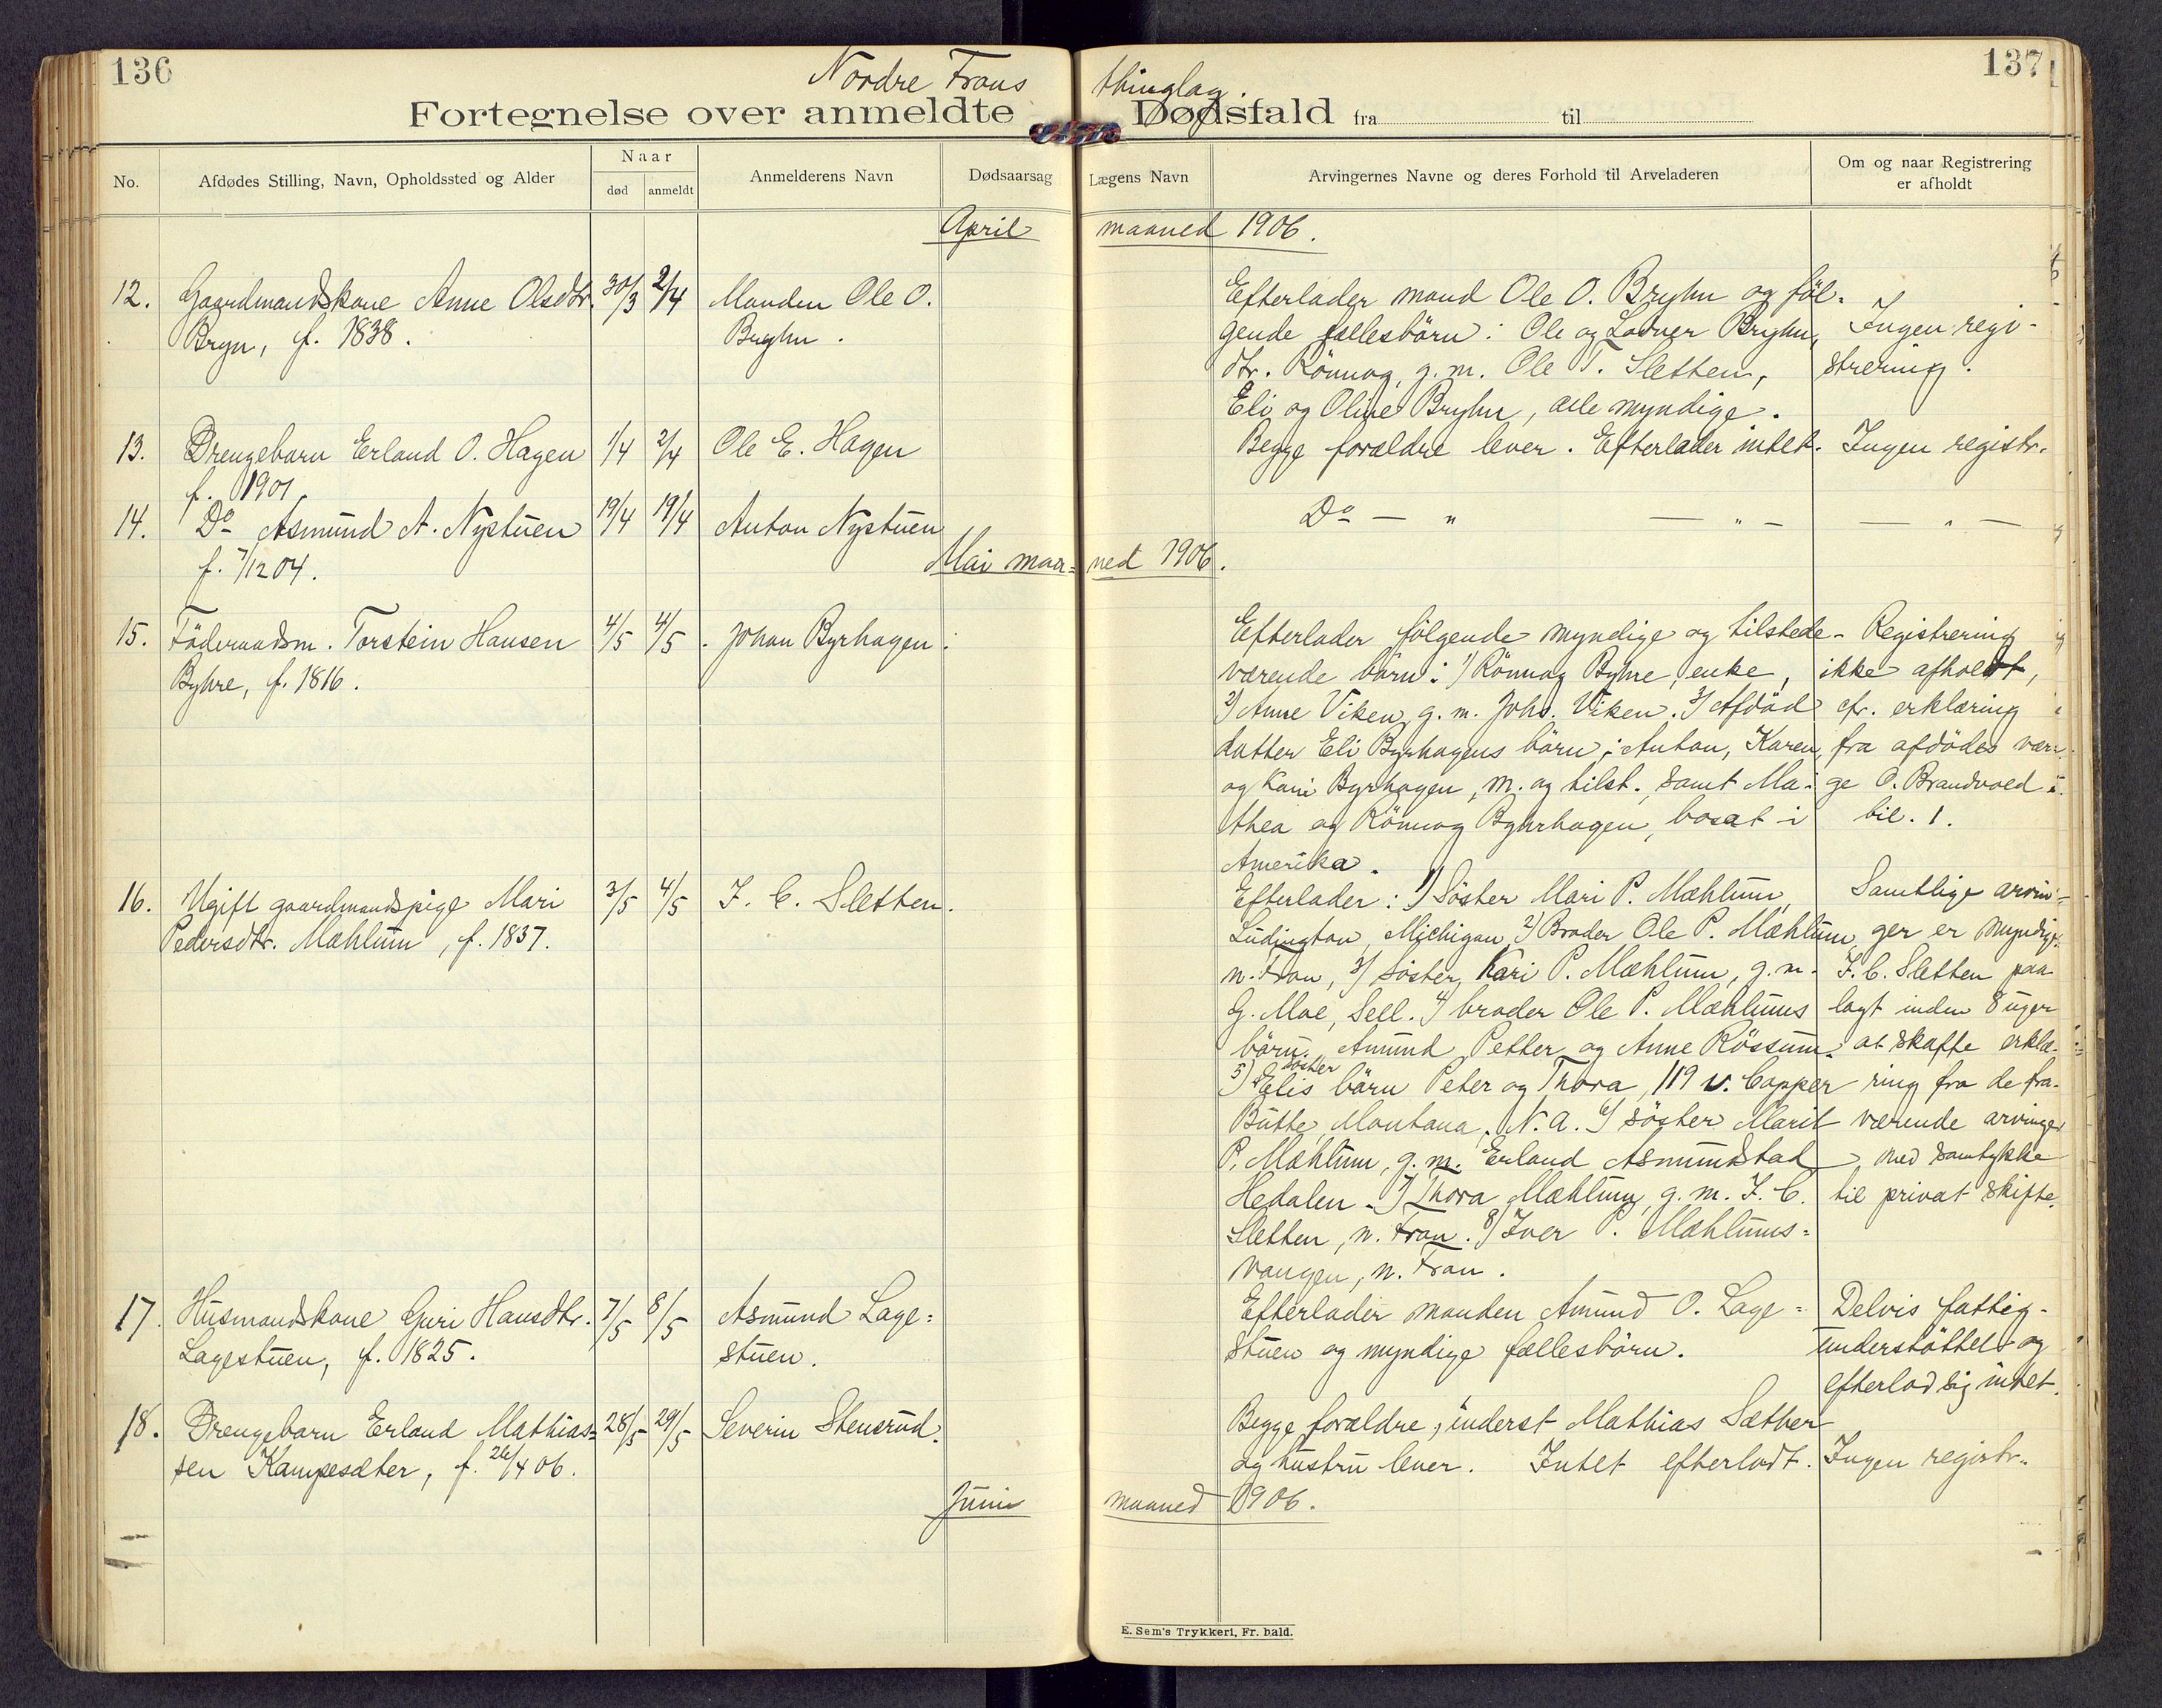 136
Nordre Frons thinglag.
137
Fortegnelse over anmeldte Dødsfald fra til
No.
Afdødes Stilling, Navn, Opholdssted og Alder
Naar
død
anmeldt
Anmelderens Navn
Dødsaarsag
Lægens Navn
Arvingernes Navne og deres Forhold til Arveladeren
Om og naar Registrering
er afholdt
April maaned 1906.
12. Gaardmandskone Anne Olsdtr. 30/3 2/4 Manden Ole O.
Bryn, f. 1838. Bryhn.
Efterlader mand Ole O. Bryhn og föl-
gende fællesbörn: Ole og Bryhn,
dtr. Rönnog, g. m. Ole T. Sletten,
Eli og Oline Bryhn, alle myndige.
Ingen regi-
strering.
13. Drengebarn Erland O. Hagen 1/4 2/4 Ole E. Hagen
f. 1901.
Begge forældre lever. Efterlader intet.
Ingen registr.
14. Do Asmund A. Nystuen 19/4 19/4 Anton Nystuen
f. 7/12 04.
Do — " — " — — " —
Mai maa= ned 1906.
15. Föderaadsm. Torstein Hansen 4/5 4/5 Johan Byrhagen.
Byhre, f. 1816.
Efterlader følgende myndige og tilstede-
værende börn: 1) Rönnog Byhre, enke,
2) Anne Viken, g. m. Johs. Viken. 3) Afdöd
datter Eli Byrhagens börn: Anton, Karen,
og Kari Byrhagen, m. og tilst. samt Ma-
thea og Rönnog Byhrhagen, bosat i
Amerika.
Registrering
ikke afholdt,
cfr. erklæring
fra afdödes vær-
ge O. Brandvold i
bil. 1.
16. Ugift gaardmandspige Mari 3/5 4/5 I. C. Sletten.
Pedersdtr. Mæhlum, f. 1837.
Efterlader: 1) Söster Mari P. Mæhlum,
Ludington, Michigan, 2) Broder Ole P. Mæhlum
n. Fron, 3) söster Kari P. Mæhlum, g. m.
G. Moe, Sell. 4) broder Ole P. Mæhlums
börn: Amund, Petter og Anne Rössum.
5) söster Elis börn Peter og Thora, 119 v. Copper
Butte, Montana, N. A. 6) söster Marit
P. Mæhlum, g. m. Erland Asmundstad
Hedalen. 7) Thora Mæhlum, g. m. I. C.
Sletten, n. Fron. 8) Iver P. Mæhlums=
vangen, n. Fron.
Samtlige arvin-
ger er myndige.
I. C. Sletten paa-
lagt inden 8 uger
at skaffe erklæ-
ring fra de fra-
værende arvinger
med samtykke
til privat skifte.
17. Husmandskone Guri Hansdtr. 7/5 8/5 Asmund Lage=
Lagestuen, f. 1825. stuen.
Efterlader manden Amund O. Lage=
stuen og myndige fællesbörn.
Delvis fattig-
understöttet og
efterlod sig intet.
18. Drengebarn Erland Mathias= 28/5 29/5 Severin Stensrud.
sen Kampesæter, f. 26/4 06.
Begge forældre, inderst Mathias Sæther
og hustru lever. Intet efterladt.
Ingen registr.
Juni maaned 1906.
E. Sem's Trykkeri, Fr. hald.